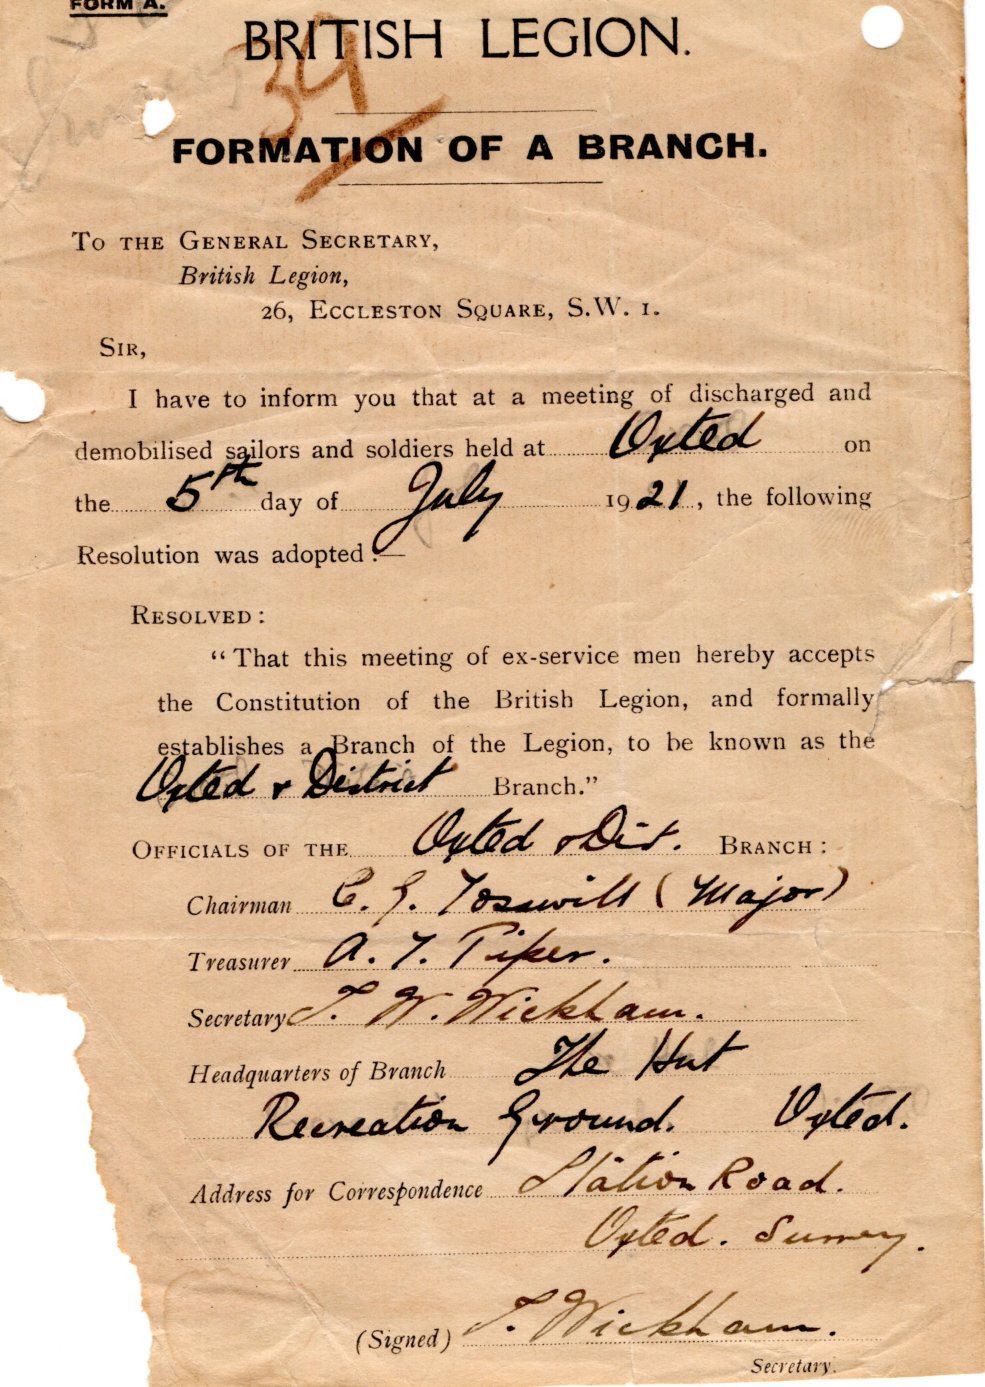 FORM A.
BRITISH LEGION.
Surrey
34
FORMATION OF A BRANCH.
TO THE GENERAL SECRETARY,
British Legion,
26, ECCLESTON SQUARE, S.W. 1.
SIR,
I have to inform you that at a meeting of discharged and
demobilised sailors and soldiers held at Oxted on
the 5th day of July 1921, the following
Resolution was adopted :—
RESOLVED :
“That this meeting of ex-service men hereby accepts
the Constitution of the British Legion, and formally
establishes a Branch of the Legion, to be known as the
Oxted & District Branch.”
OFFICIALS OF THE Oxted & Dis. BRANCH :
Chairman C. G. Tosswill (Major)
Treasurer A. T. Piper.
Secretary T. W. Wickham.
Headquarters of Branch The Hut
Recreation Ground. Oxted.
Address for Correspondence Station Road.
Oxted. Surrey.
(Signed) T. Wickham.
Secretary.